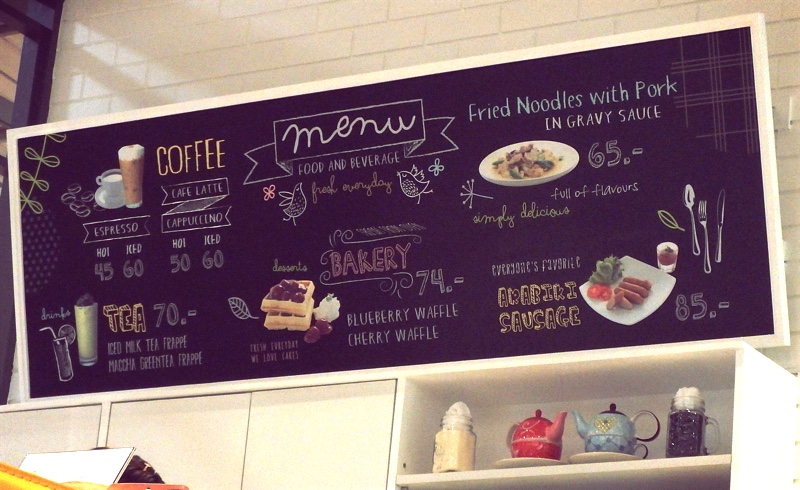 menu
FOOD AND BEVERAGE
fresh everyday
COFFEE
CAFE LATTE
CAPPUCCINO
ESPRESSO
HOT ICED
45 60
HOT ICED
50 60
drinks
TEA 70.-
ICED MILK TEA FRAPPE
MACCHA GREENTEA FRAPPE
desserts
BAKERY
74.-
BLUEBERRY WAFFLE
CHERRY WAFFLE
FRESH EVERYDAY
WE LOVE CAKES
Fried Noodles with Pork
IN GRAVY SAUCE
65.-
full of flavours
simply delicious
everyone's favorite
ARABIKI
SAUSAGE
85.-